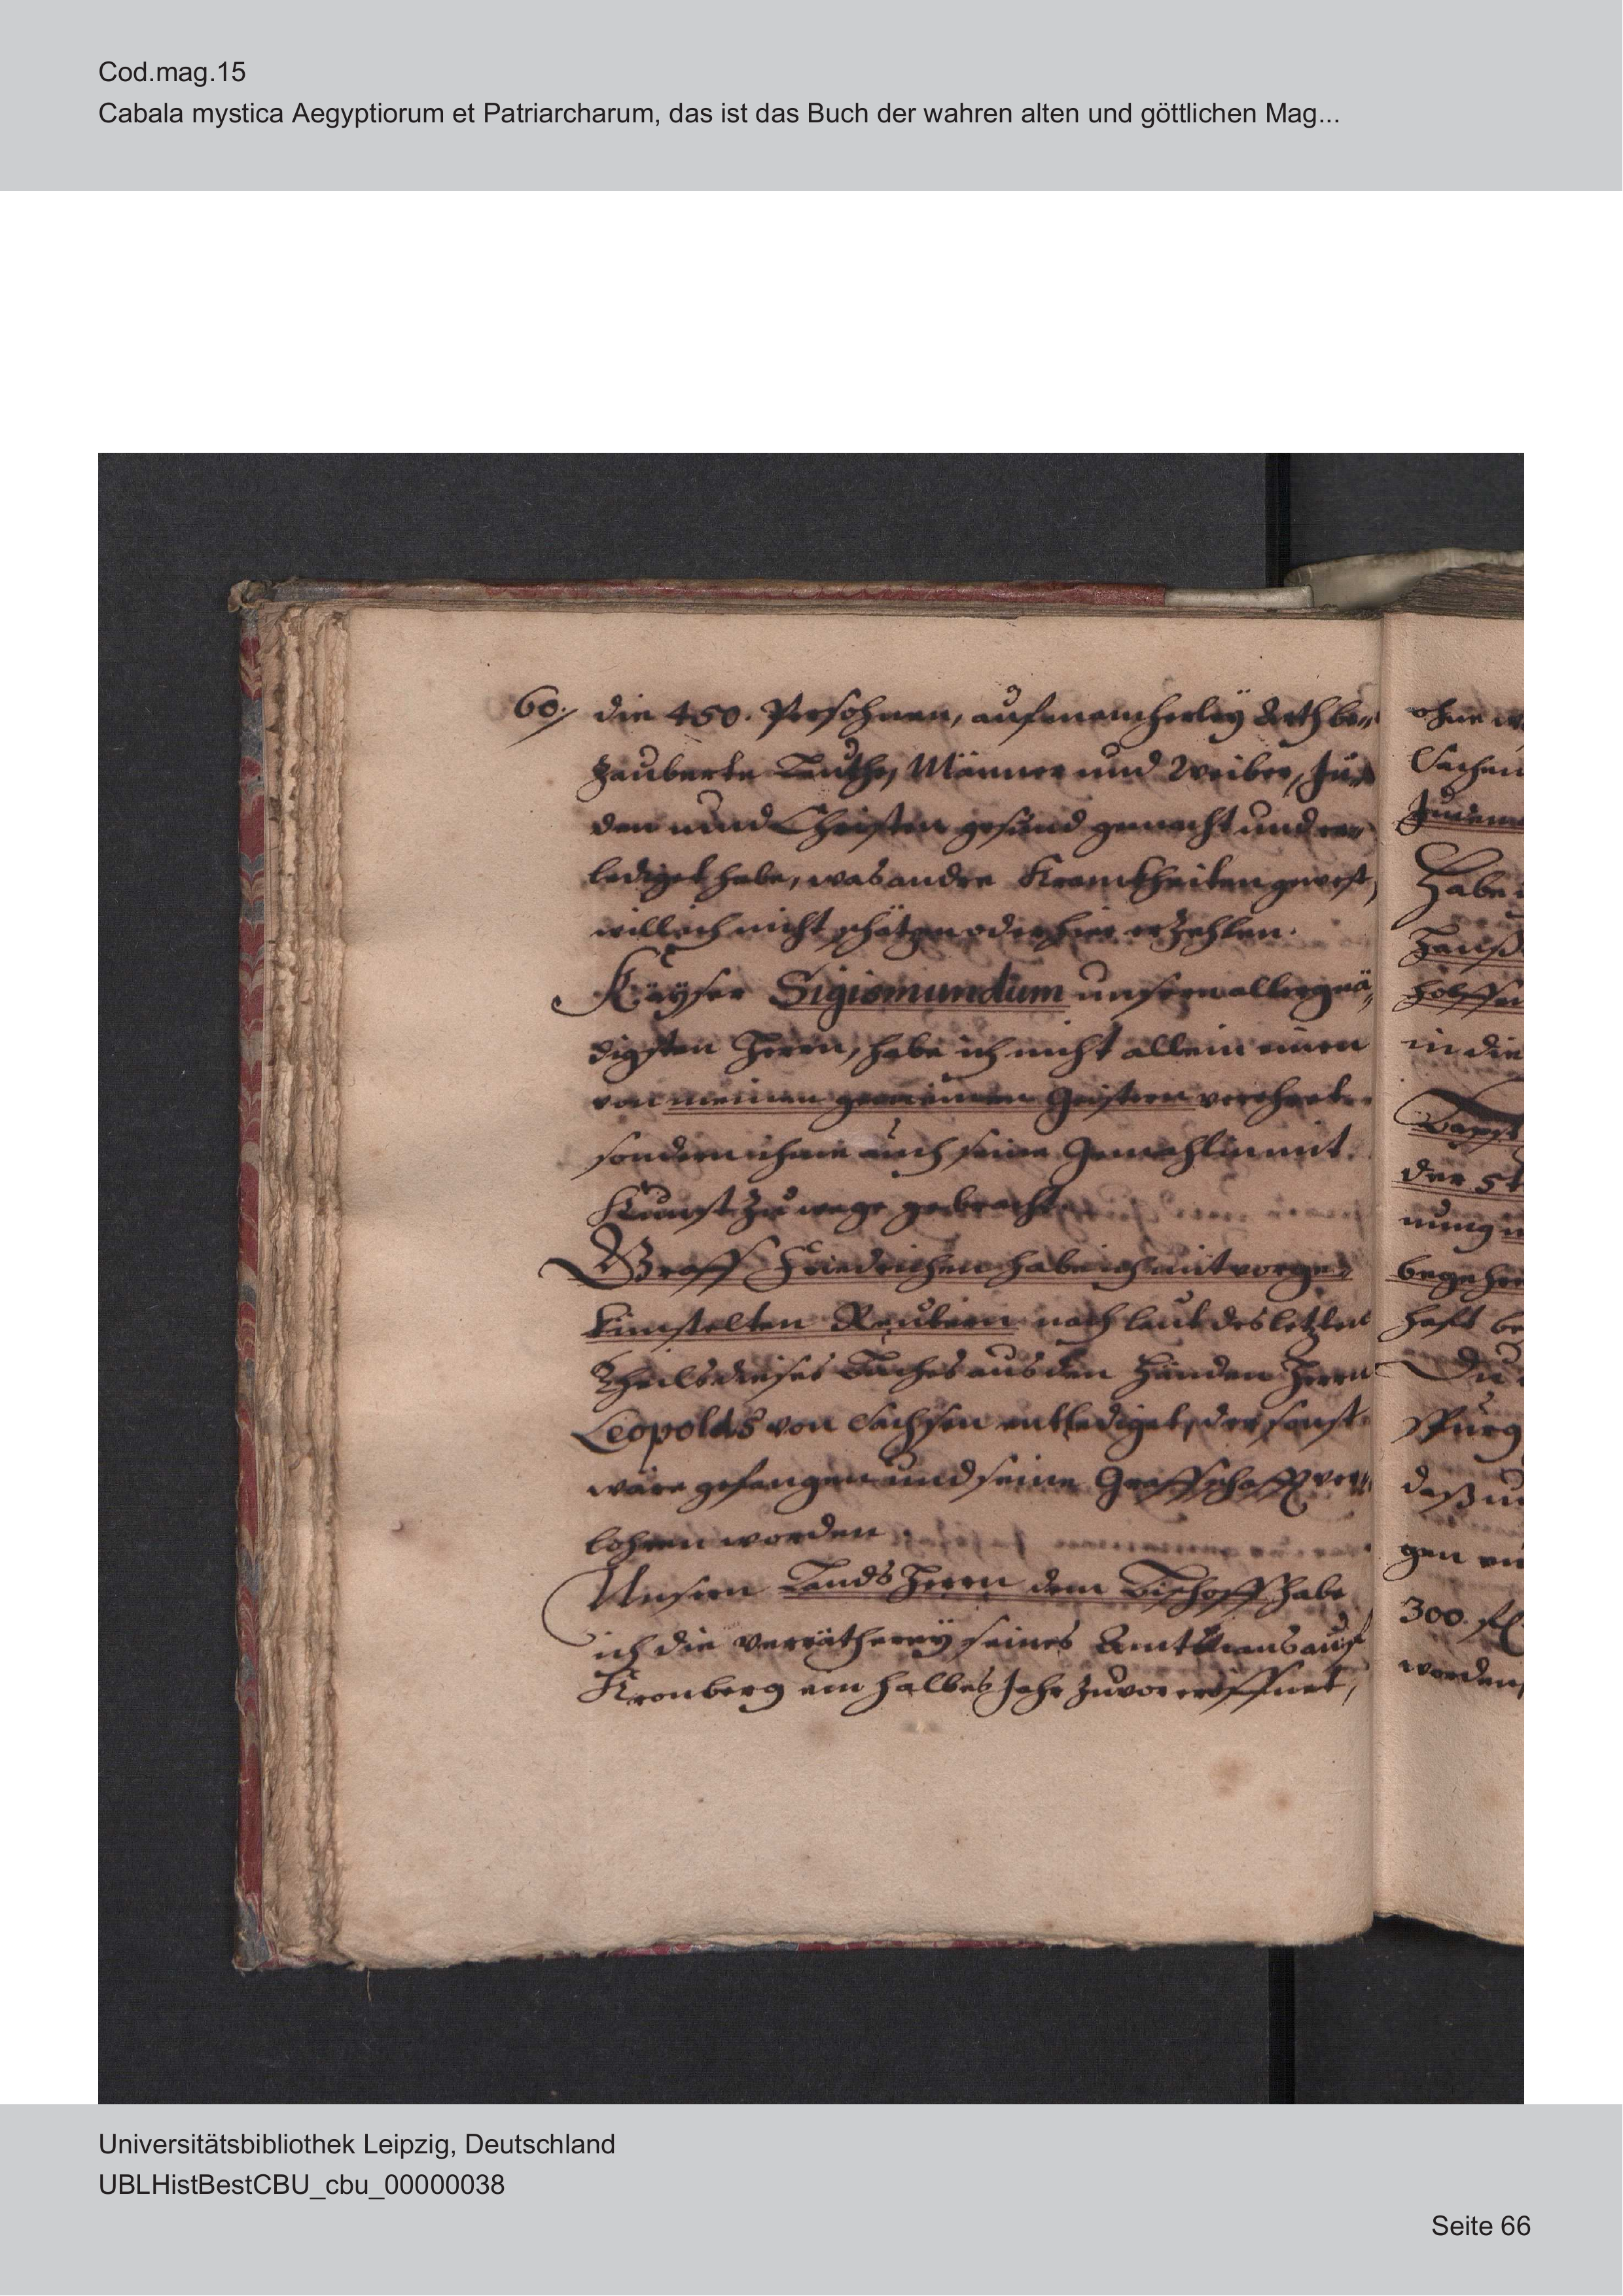 Cod.mag.15
Cabala mystica Aegyptiorum et Patriarcharum, das ist das Buch der wahren alten und göttlichen Mag...
60. die 450. Persohnen, auf mancherleÿ Arth be„
zauberte Leuthe, Männer und Weiber, Ju„
den und Christen gesund gemacht und er„
lediget habe, was andre Kranckheiten gewest,
will ich nicht schätzen oder hier erzehlen.
Kaÿser Sigismundum unsern allergnä„
digsten Herrn, habe ich nicht allein einen
von meinen gemeinen Geistern verehret
sondern ihme auch seine Gemahlin mit
Kunst zu wege gebracht.
Graff Friedrichen habe ich mit vorge„
künstelten Reutern nach laut des letzten
Theils dieses Buches aus den Händen Herrn
Leopolds von Sachsen entlediget, der sonst
wäre gefangen und seine Graffschafft ver„
lohren worden.
Unsern Lands Herrn dem Bischoff habe
ich die Verräthereÿ seines Amtmans auf
Kronberg ein halbes Jahr zuvor eröffnet,
ohne
Sachen
Habe
in die
der
nung
begehr
haft be
Du
spurg
daß
gen
300. fl.
worden,
Universitätsbibliothek Leipzig, Deutschland
UBLHistBestCBU_cbu_00000038
Seite 66